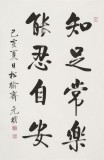 知足常樂
能忍自安
己亥夏月松榆齋